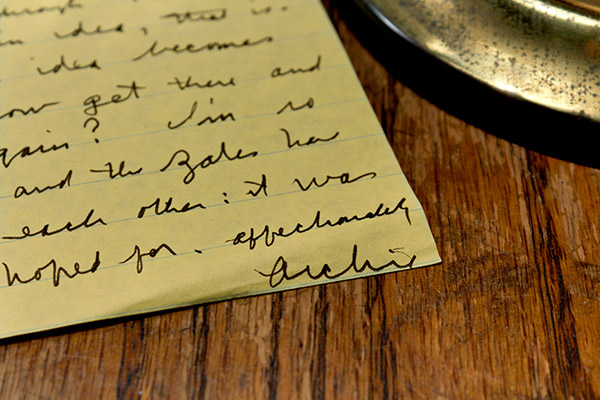 through
an idea, that is.
idea becomes
now get there and
again? I'm so
and the Zales have
each other: it was
hoped for. affectionately
Archie